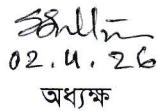 02.4.26
অধ্যক্ষ